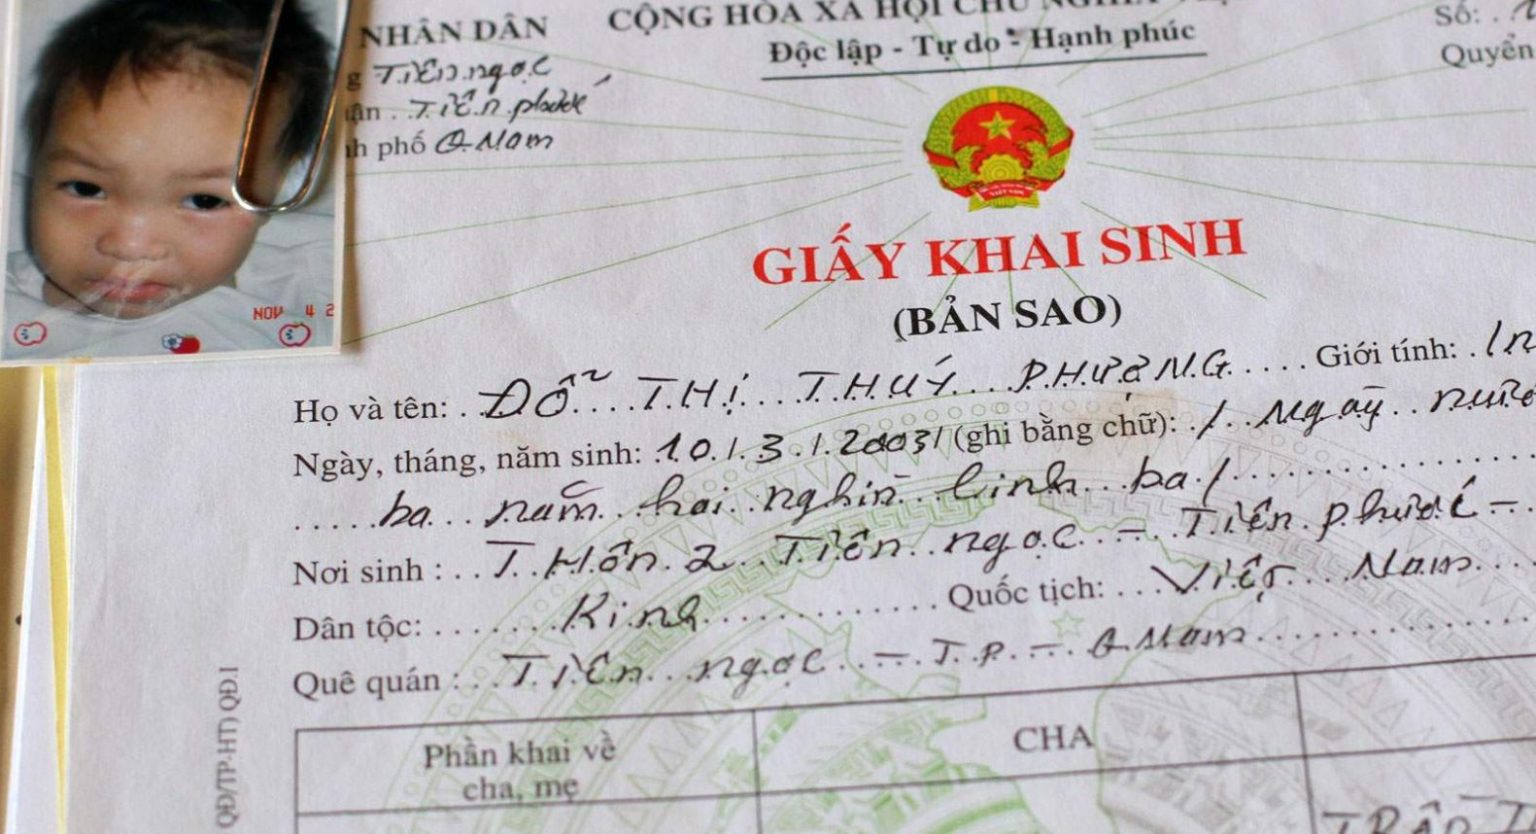 NHÂN DÂN
CỘNG HÒA XÃ HỘI CHỦ NGHĨA
Độc lập - Tự do - Hạnh phúc
Số:
Quyển
Tiên ngọc
Tiên phước
phố Q Nam
GIẤY KHAI SINH
(BẢN SAO)
NOV 4 2
Họ và tên: ĐỖ THỊ THUÝ PHƯỢNG Giới tính:
Ngày, tháng, năm sinh: 10/3/2003/ (ghi bằng chữ): / Ngày
ba năm hai nghìn linh ba/
Nơi sinh: THôn 2 Tiên ngọc - Tiên phước -
Dân tộc: Kinh Quốc tịch: Việt Nam
Quê quán: Tiên ngọc - T.P - Q Nam
QĐ/TP-HT) QĐ.1
Phần khai về CHA
cha, mẹ